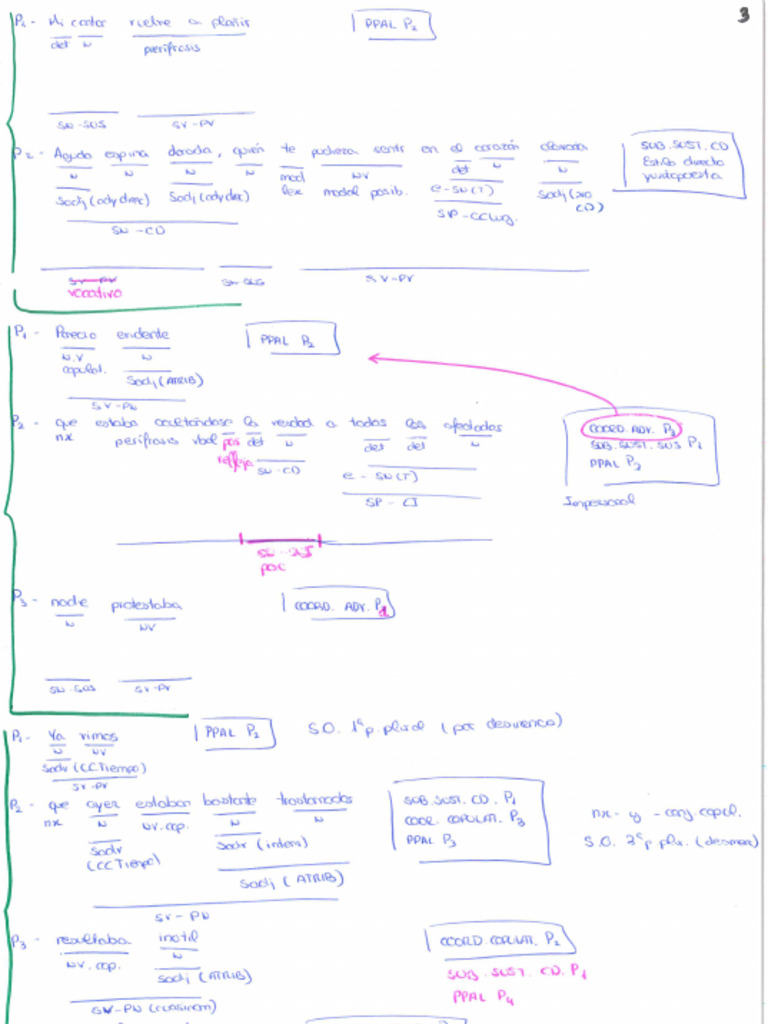 3
P1 - Mi cantar vuelve a plañir PPAL P2
det N perífrasis
SN-SUJ SV-PV
P2 - Aguda espina dorada, quién te pudiera sentir en el corazón clavada SUB.SUST.CD
Estilo directo
yuxtapuesta
N N N N mod NV det N N
Sadj (ady direc) Sadj (ady direc) lex modal posib. e-SN(T) Sadj (
CD)
SN-CD SP-CCLug.
SV-PV SN-SUJ SV-PV
vocativo
P1 - Parecía evidente PPAL P2
N.V N
copulat. Sadj (ATRIB)
SV-PN
P2 - que estaba ocultándose la verdad a todos los afectados
nx perífrasis vbal pas det N det det N
refleja SN-CD e-SN(T)
SP-CI
COORD. ADV. P3
SUB.SUST.SUJ P1
PPAL P3
Impersonal
SN-SUJ
pac
P3 - nadie protestaba COORD. ADV. P2
N NV
SN-SUJ SV-PV
P1 - Ya vimos PPAL P2 S.O. 1ªp.plural (por desinencia)
N NV
Sadv (CCTiempo)
SV-PV
P2 - que ayer estaban bastante trastornados
nx N NV.cop. N N
Sadv Sadv (intens)
(CCTiempo)
Sadj (ATRIB)
SV-PN
SUB.SUST.CD.P1
COOR.COPULAT. P3
PPAL P3
nx- y - conj copul.
S.O. 3ªp plu. (desinen)
P3 - resultaba inútil COORD.COPULAT. P2
NV.cop. N
Sadj (ATRIB)
SUB.SUST. CD. P1
PPAL P4
SV-PN